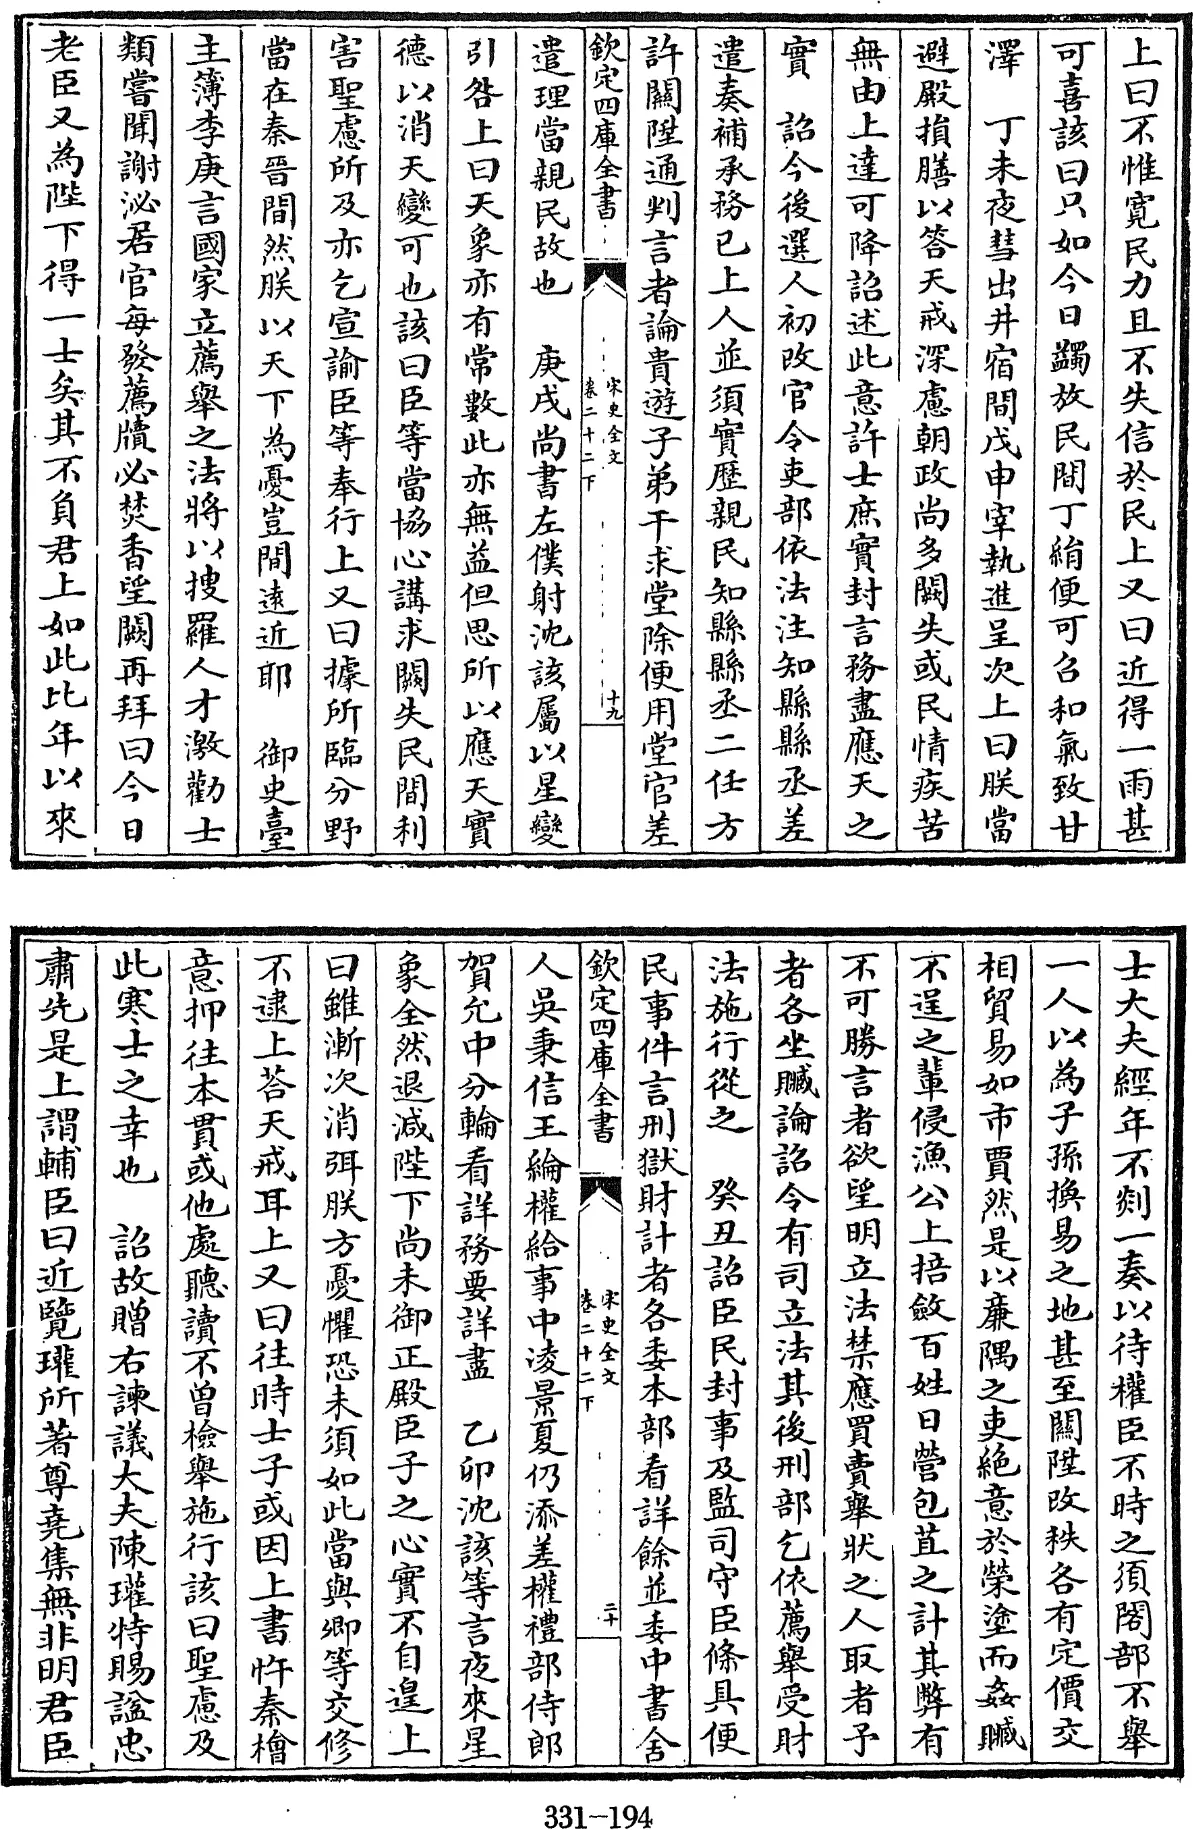 上曰不惟寛民力且不失信於民上又曰近得一雨甚
可喜該曰只如今日蠲放民間丁絹便可召和氣致甘
澤　丁未夜彗出井宿間戊申宰執進呈次上曰朕當
避殿損膳以答天戒深慮朝政尚多闕失或民情疾苦
無由上達可降詔述此意許士庶實封言務盡應天之
實　詔今後選人初改官令吏部依法注知縣縣丞差
遣奏補承務已上人並須實歴親民知縣縣丞二任方
許關陞通判言者論貴遊子弟干求堂除便用堂官差
欽定四庫全書
宋史全文
卷二十二下
十九
遣理當親民故也　庚戌尚書左僕射沈該屬以星變
引咎上曰天象亦有常數此亦無益但思所以應天實
德以消天變可也該曰臣等當協心講求闕失民間利
害聖慮所及亦乞宣諭臣等奉行上又曰據所臨分野
當在秦晉間然朕以天下為憂豈間遠近耶　御史臺
主簿李庚言國家立薦舉之法將以搜羅人才激勸士
類嘗聞謝泌居官每發薦牘必焚香望闕再拜曰今日
老臣又為陛下得一士矣其不負君上如此比年以來
士大夫經年不剡一奏以待權臣不時之須閤部不舉
一人以為子孫換易之地甚至關陞改秩各有定價交
相貿易如市賈然是以亷隅之吏絶意於榮塗而姦贓
不逞之輩侵漁公上掊斂百姓日營包苴之計其弊有
不可勝言者欲望明立法禁應買賣舉狀之人取者予
者各坐贓論詔令有司立法其後刑部乞依薦舉受財
法施行從之　癸丑詔臣民封事及監司守臣條具便
民事件言刑獄財計者各委本部看詳餘並委中書舍
欽定四庫全書
宋史全文
卷二十二下
二十
人吳秉信王綸權給事中凌景夏仍添差權禮部侍郎
賀允中分輪看詳務要詳盡　乙卯沈該等言夜來星
象全然退減陛下尚未御正殿臣子之心實不自遑上
曰雖漸次消弭朕方憂懼恐未須如此當與卿等交修
不逮上荅天戒耳上又曰往時士子或因上書忤秦檜
意押往本貫或他處聽讀不曽檢舉施行該曰聖慮及
此寒士之幸也　詔故贈右諫議大夫陳瓘特賜謚忠
肅先是上謂輔臣曰近覽瓘所著尊堯集無非明君臣
331-194